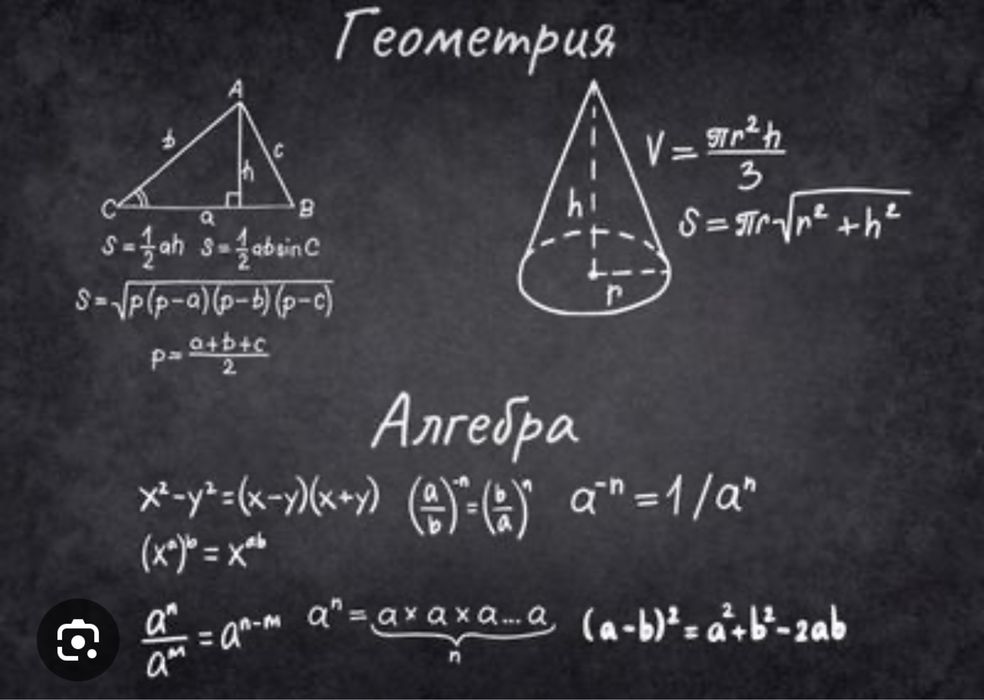 Геометрия
A
b
c
h
C
a
B
S = 1/2 ah S = 1/2 ab sin C
S = √p(p-a)(p-b)(p-c)
p = a+b+c/2
h
r
V = πr²h/3
S = πr√r² + h²
Алгебра
x²-y²=(x-y)(x+y) (a/b)⁻ⁿ=(b/a)ⁿ a⁻ⁿ = 1/aⁿ
(xᵃ)ᵇ = xᵃᵇ
aⁿ/aᵐ = aⁿ⁻ᵐ aⁿ = a × a × a ... a (a-b)² = a²+b²-2ab
n